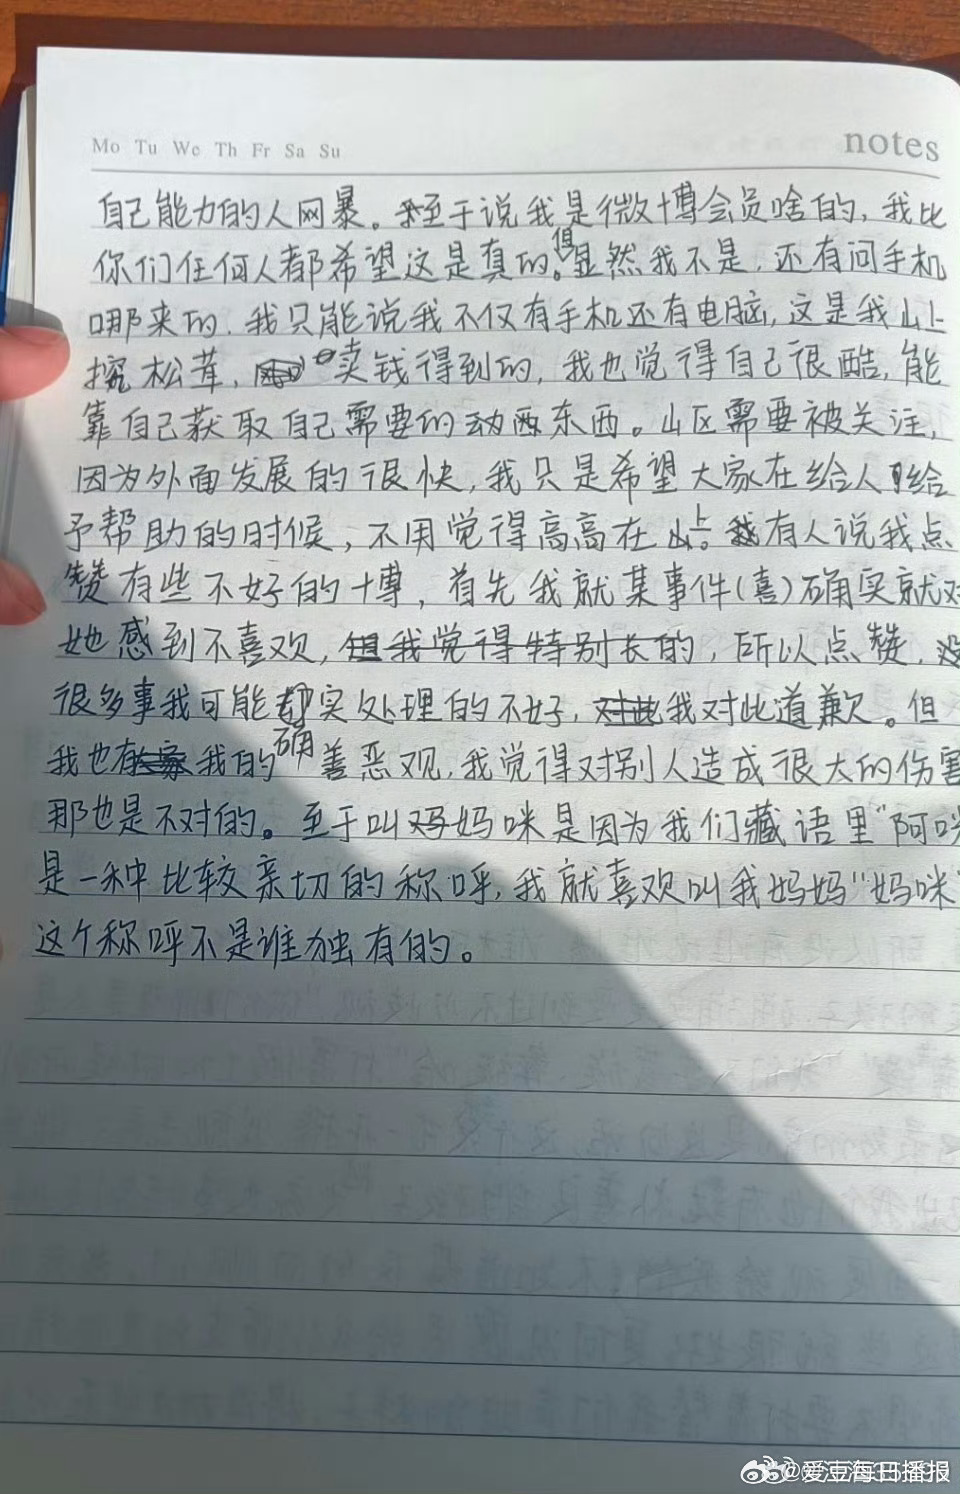 Mo Tu We Th Fr Sa Su
notes
自己能力的人网暴。至于说我是微博会员啥的，我比
你们任何人都希望这是真的。但显然我不是，还有问手机
哪来的，我只能说我不仅有手机还有电脑，这是我山上
挖松茸，卖钱得到的，我也觉得自己很酷，能
靠自己获取自己需要的东西。山区需要被关注，
因为外面发展的很快，我只是希望大家在给人给
予帮助的时候，不用觉得高高在上。有人说我点
赞有些不好的博，首先我就某事件(喜)确实就对
她感到不喜欢，所以点赞，
很多事我可能却实处理的不好，我对此道歉。但
我也有我的善恶观，我觉得对别人造成很大的伤害
那也是不对的。至于叫妈咪是因为我们藏语里“阿咪
是一种比较亲切的称呼，我就喜欢叫我妈妈“妈咪”
这个称呼不是谁独有的。